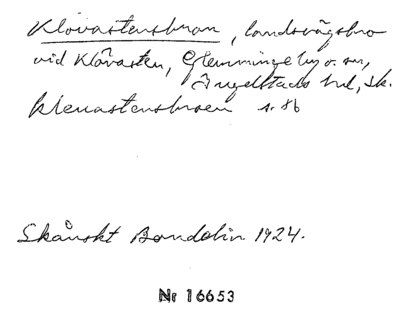 Klövastensbron, landsvägsbro
vid Klåvasten, Glemminge by o. sn,
Ingelstads hd, Sk.
klevastensbroen s. 86
Skånskt Bondeliv 1924.
Nr 16653